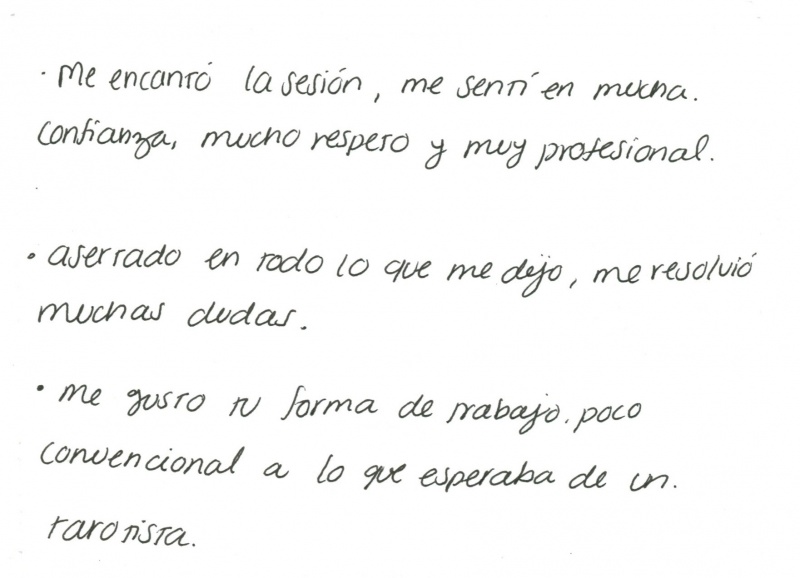 · Me encantó la sesión, me sentí en mucha.
confianza, mucho respeto y muy profesional.
· aserrado en todo lo que me dijo, me resolvió
muchas dudas.
· Me gusto tu forma de trabajo. poco
convencional a lo que esperaba de un.
tarotista.